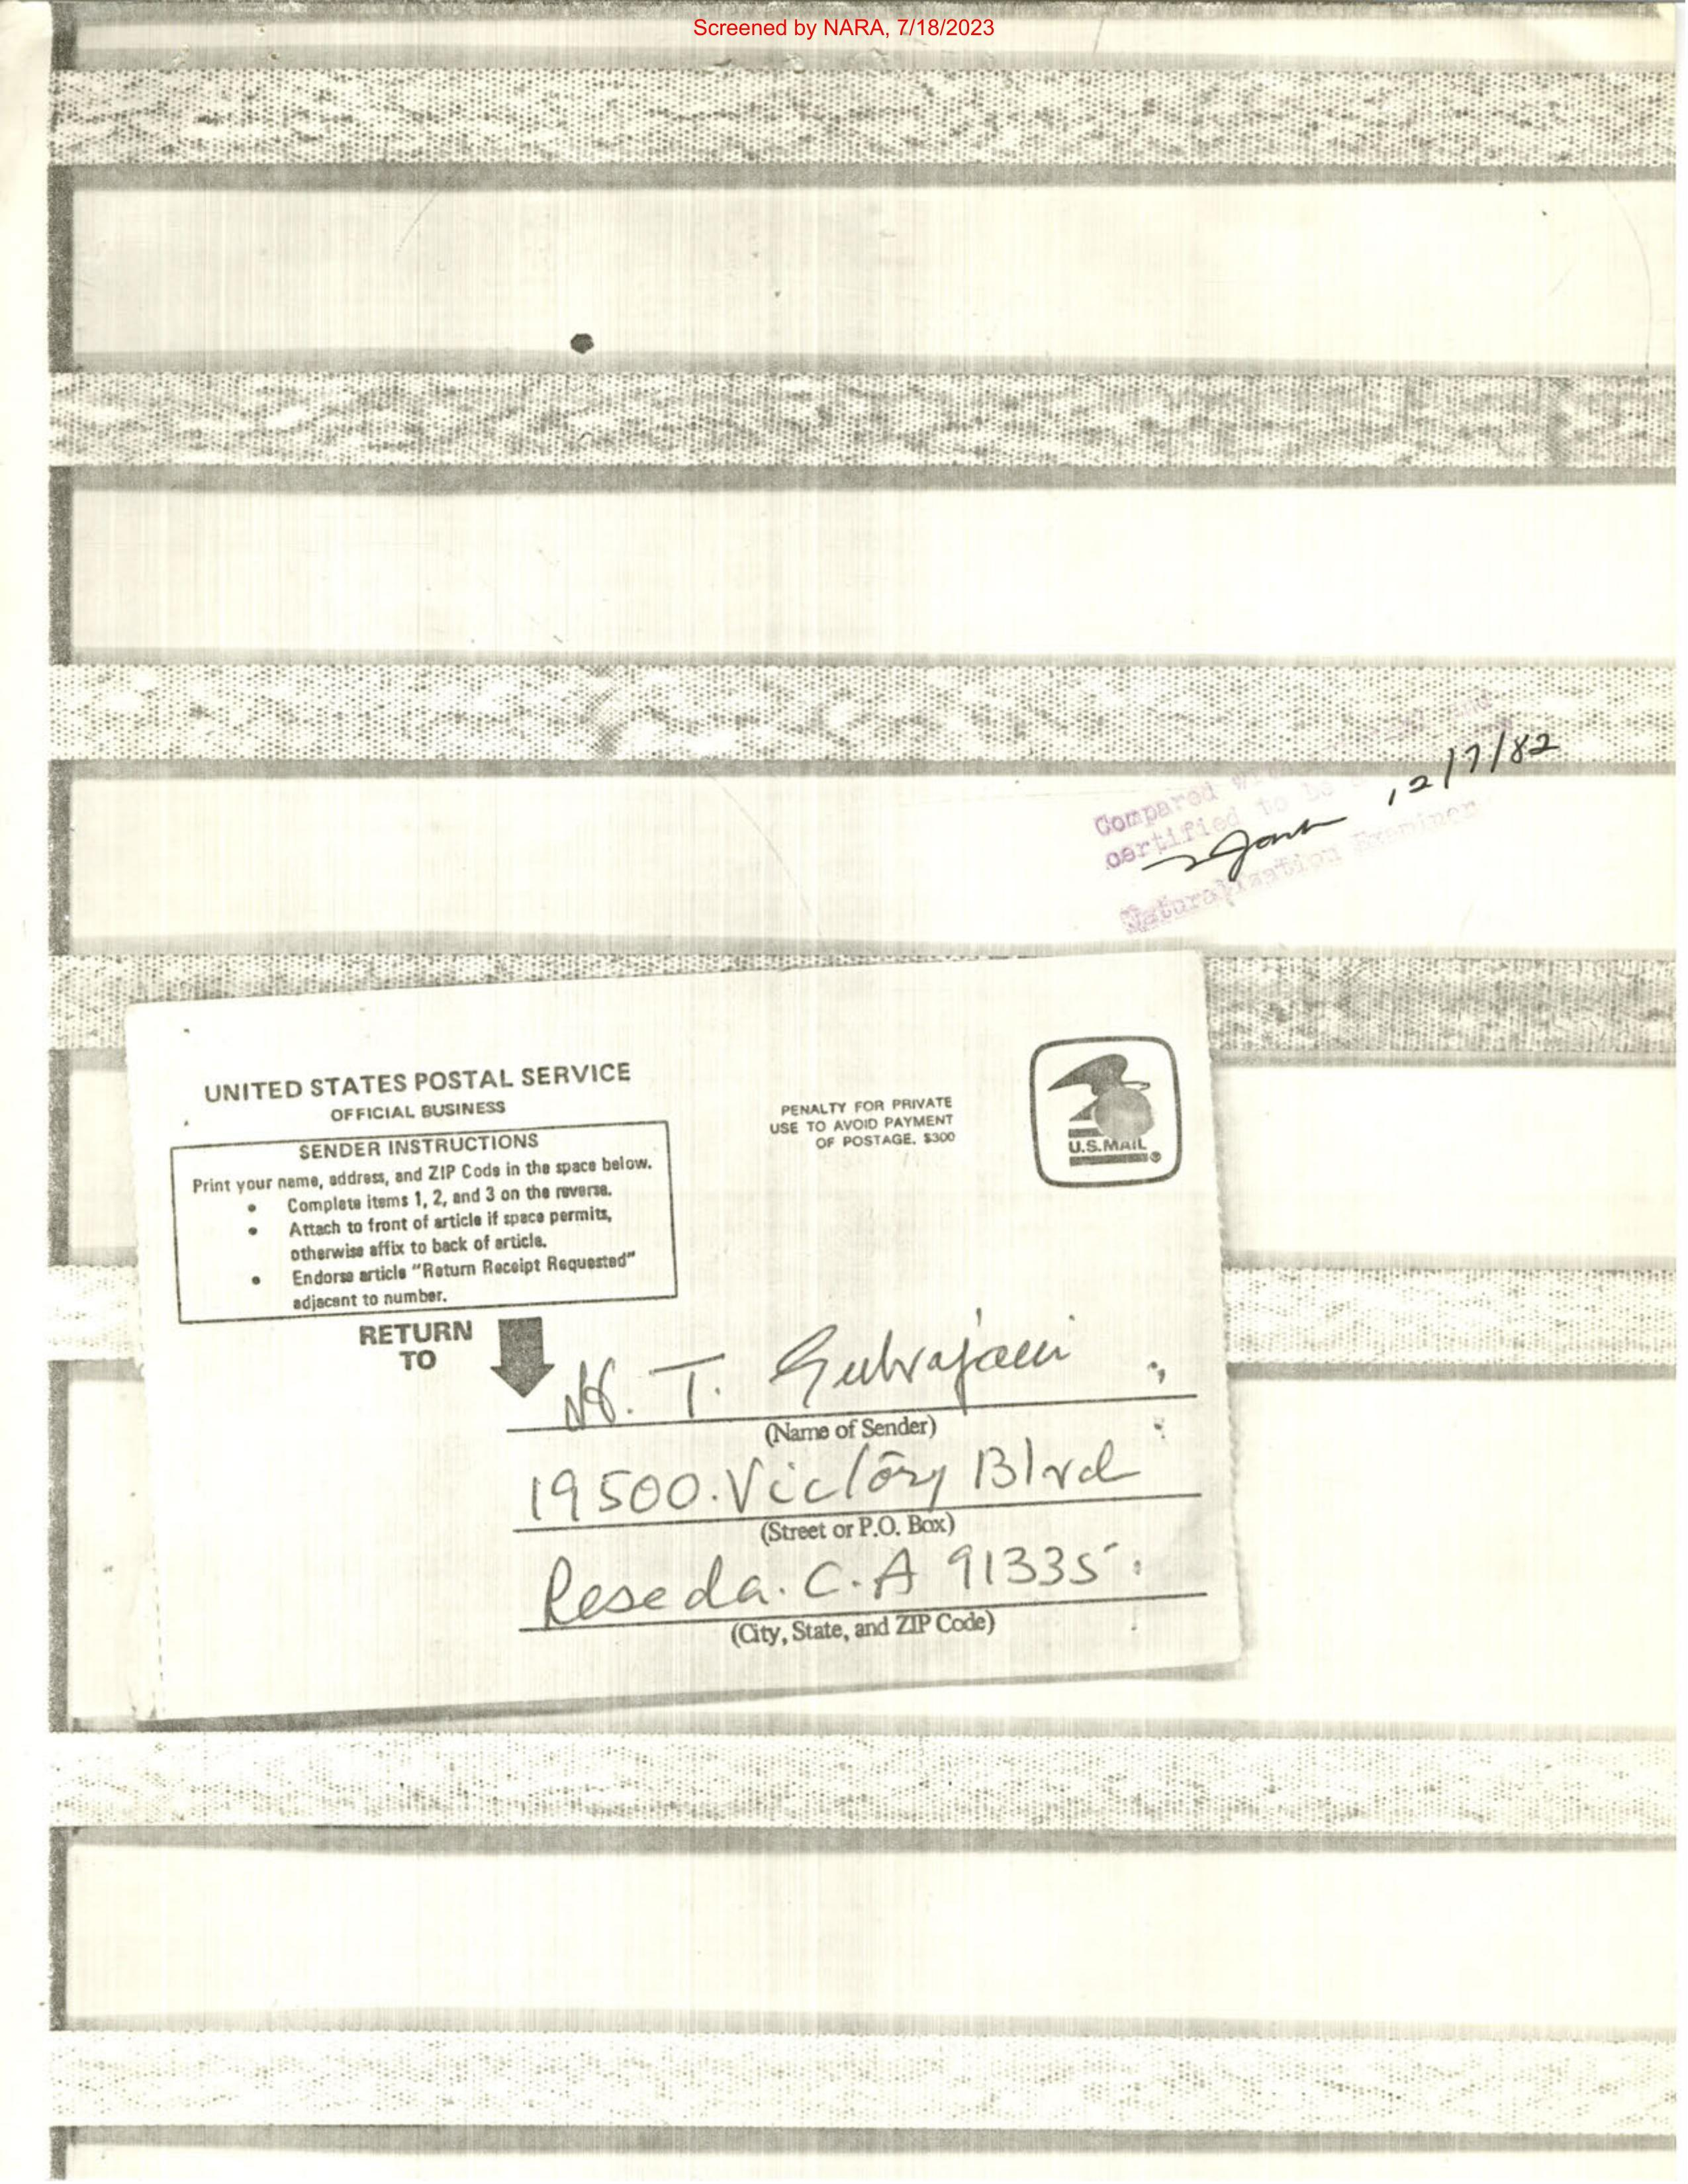 Screened by NARA, 7/18/2023
12/7/82
Compared
certified to be
Naturalization Examiner
UNITED STATES POSTAL SERVICE
OFFICIAL BUSINESS
SENDER INSTRUCTIONS
Print your name, address, and ZIP Code in the space below.
• Complete items 1, 2, and 3 on the reverse.
• Attach to front of article if space permits,
otherwise affix to back of article.
• Endorse article “Return Receipt Requested”
adjacent to number.
PENALTY FOR PRIVATE
USE TO AVOID PAYMENT
OF POSTAGE, $300
U.S.MAIL
RETURN
TO
T.
(Name of Sender)
19500. Victory Blvd
(Street or P.O. Box)
Reseda. C.A 91335
(City, State, and ZIP Code)